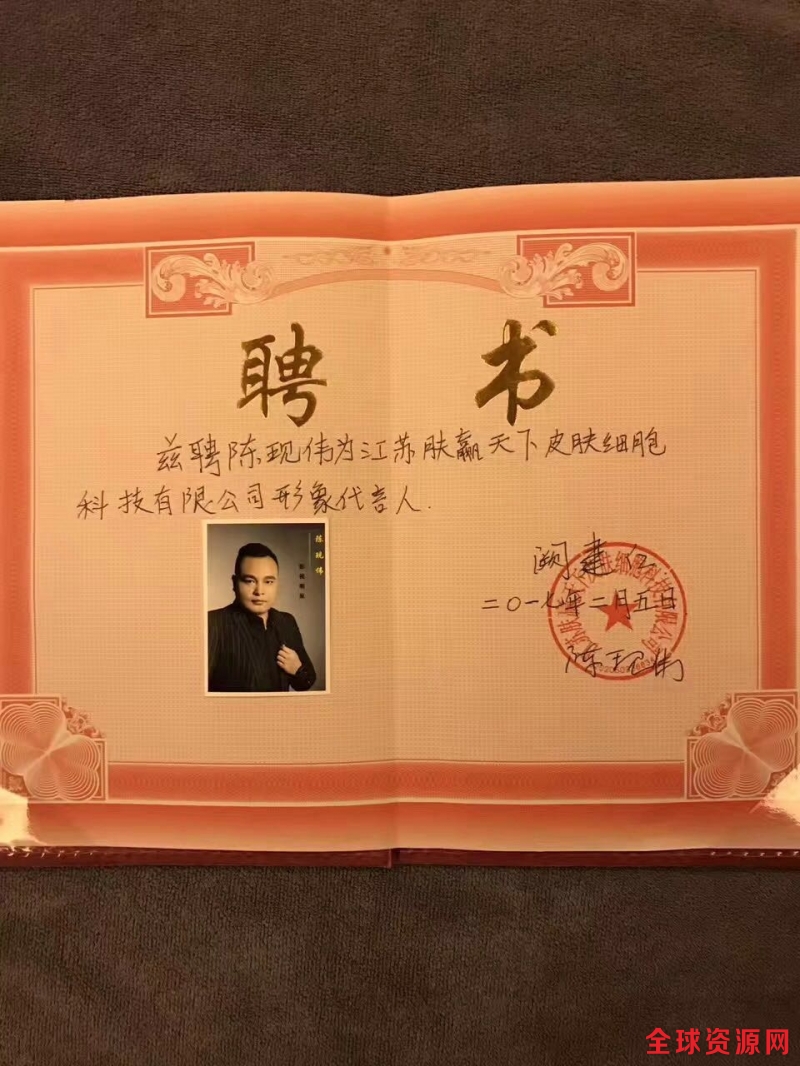 聘 书
兹聘陈现伟为江苏肤赢天下皮肤细胞
科技有限公司形象代言人.
陈现伟
阚建仁
二〇一七年二月五日
陈现伟
全球资源网